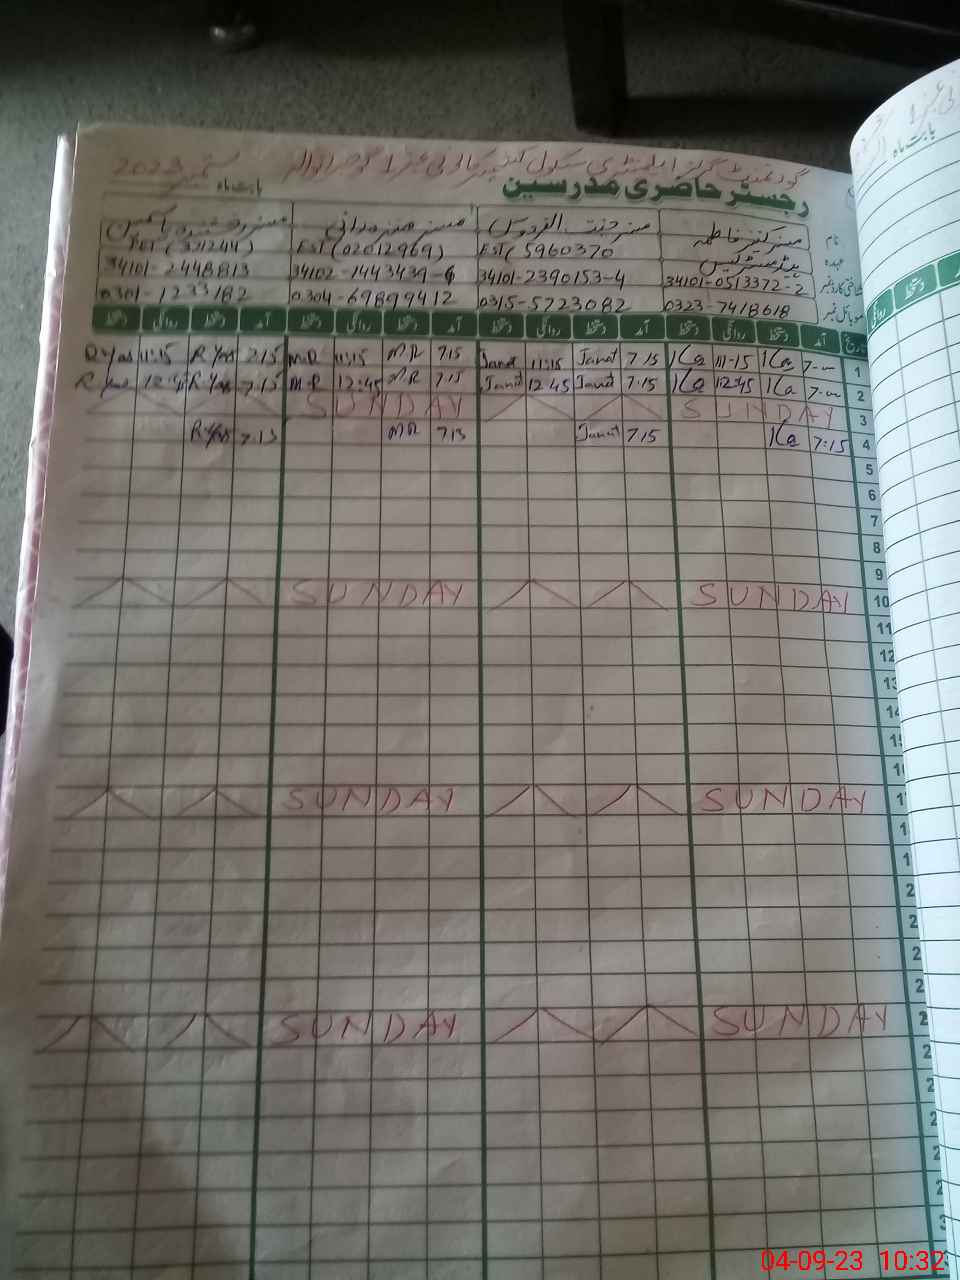 گورنمنٹ گرلز ایلیمنٹری سکول گوجرانوالہ
رجسٹر حاضری مدرسین بابت ماہ ستمبر 2023
نام مسز کنیز فاطمہ مسز جنت الفردوس مسز
عہدہ ہیڈمسٹریس EST (5960370 EST (02012969) PET (321244)
شناختی کارڈ نمبر 34101-0513372-2 34101-2390153-4 34102-1443439-6 34101-2448813
موبائل نمبر 0323-7418618 0315-5723082 0304-69899412 0301-1233182
تاریخ آمد دستخط روانگی دستخط آمد دستخط روانگی دستخط آمد دستخط روانگی دستخط آمد دستخط روانگی دستخط
1 7-00 Ka 11-15 Ka 7.15 Janat 11:15 Janat 7.15 MR 11:15 M.R 7.15 R Yas 11:15 R Yas
2 7-00 Ka 12:45 Ka 7.15 Janat 12.45 Janat 7.15 MR 12:45 M.R 7.15 R Yas 12:45 R Yas
3 SUNDAY SUNDAY
4 7:15 Ka 7.15 Janat 7.15 MR 7.15 R Yas
5
6
7
8
9
10 SUNDAY SUNDAY
11
12
13
14
SUNDAY SUNDAY
SUNDAY SUNDAY
بابت ماہ
روانگی دستخط
04-09-23 10:32